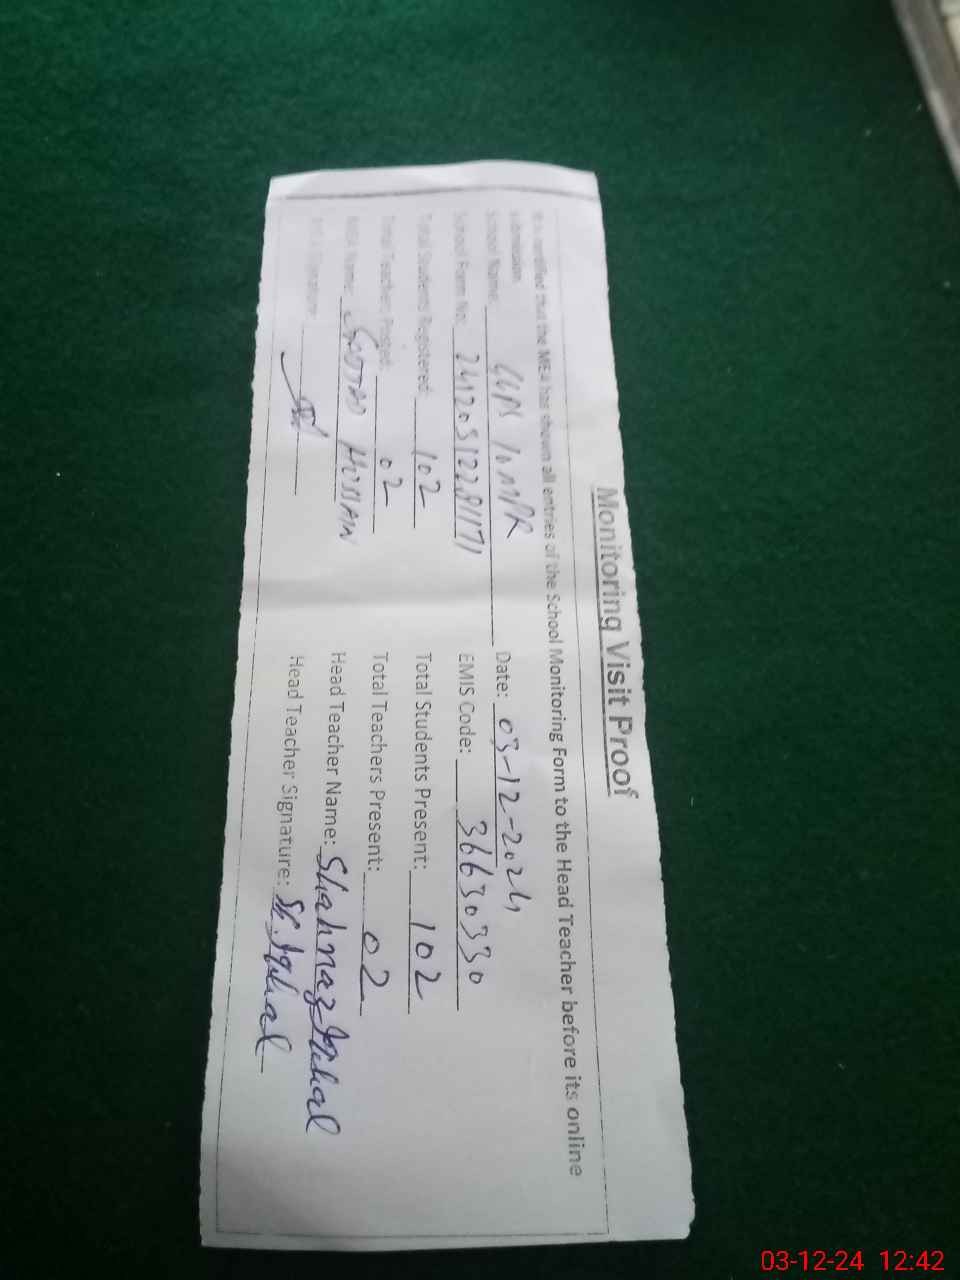 Monitoring Visit Proof
It is certified that the MEA has shown all entries of the School Monitoring Form to the Head Teacher before its online
submission.
School Name: 10 MPR Date: 03-12-2024
School Form No: EMIS Code: 36630330
Total Students Registered: 102 Total Students Present: 102
Total Teachers Posted: 02 Total Teachers Present: 02
MEA Name: Head Teacher Name: Shahnaz Iqbal
MEA Signature: Head Teacher Signature: Sh. Iqbal
03-12-24 12:42